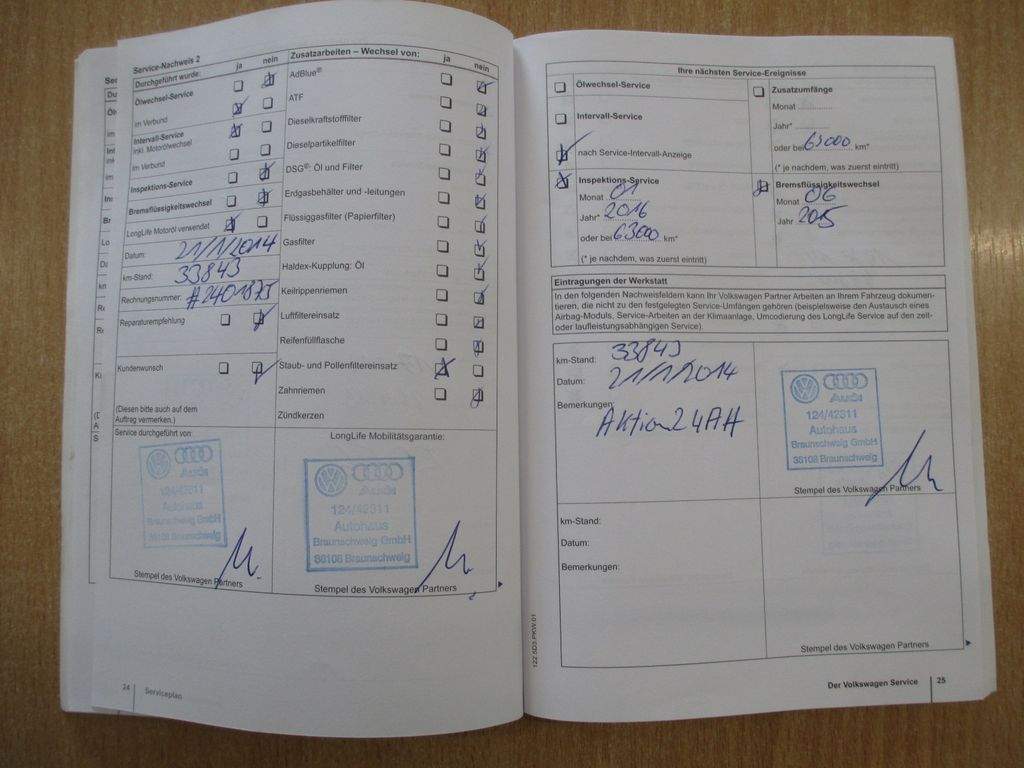 Service-Nachweis 2
Durchgeführt wurde: ja nein
Ölwechsel-Service
im Verbund
Intervall-Service
inkl. Motorölwechsel
im Verbund
Inspektions-Service
Bremsflüssigkeitswechsel
LongLife Motoröl verwendet
Datum: 21/1/2014
km-Stand: 33843
Rechnungsnummer: #2401875
Reparaturempfehlung
Kundenwunsch
(Diesen bitte auch auf dem
Auftrag vermerken.)
Service durchgeführt von:
Audi
124/42311
Autohaus
Braunschweig GmbH
38108 Braunschweig
Stempel des Volkswagen Partners
Zusatzarbeiten – Wechsel von: ja nein
AdBlue®
ATF
Dieselkraftstofffilter
Dieselpartikelfilter
DSG®: Öl und Filter
Erdgasbehälter und -leitungen
Flüssiggasfilter (Papierfilter)
Gasfilter
Haldex-Kupplung: Öl
Keilrippenriemen
Luftfiltereinsatz
Reifenfüllflasche
Staub- und Pollenfiltereinsatz
Zahnriemen
Zündkerzen
LongLife Mobilitätsgarantie:
Audi
124/42311
Autohaus
Braunschweig GmbH
38108 Braunschweig
Stempel des Volkswagen Partners
24 Serviceplan
Ihre nächsten Service-Ereignisse
Ölwechsel-Service
Intervall-Service
nach Service-Intervall-Anzeige
Zusatzumfänge
Monat
Jahr*
oder bei 63000 km*
(* je nachdem, was zuerst eintritt)
Inspektions-Service
Monat 01
Jahr* 2016
oder bei 63000 km*
(* je nachdem, was zuerst eintritt)
Bremsflüssigkeitswechsel
Monat 06
Jahr 2015
Eintragungen der Werkstatt
In den folgenden Nachweisfeldern kann Ihr Volkswagen Partner Arbeiten an Ihrem Fahrzeug dokumen-
tieren, die nicht zu den festgelegten Service-Umfängen gehören (beispielsweise den Austausch eines
Airbag-Moduls, Service-Arbeiten an der Klimaanlage, Umcodierung des LongLife Service auf den zeit-
oder laufleistungsabhängigen Service).
km-Stand: 33843
Datum: 21/1/2014
Bemerkungen:
Aktion 24AH
Audi
124/42311
Autohaus
Braunschweig GmbH
38108 Braunschweig
Stempel des Volkswagen Partners
km-Stand:
Datum:
Bemerkungen:
Stempel des Volkswagen Partners
122.5D3.PKW.01
Der Volkswagen Service 25